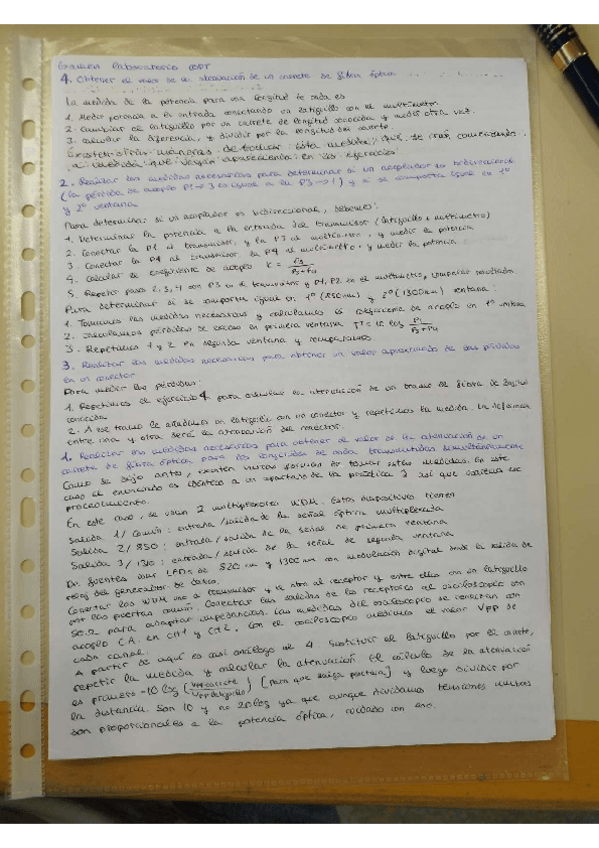 Examen laboratorio CDT
4. Obtener el valor de la atenuación de un carrete de fibra óptica
La medida de la potencia para una longitud de onda es
1. Medir potencia a la entrada conectando un latiguillo con el multímetro.
2. Cambiar el latiguillo por un carrete de longitud conocida y medir otra vez.
3. Calcular la diferencia, y dividir por la longitud del carrete
Existen otras maneras de tomar esta medida, que se irán comentando
a medida que vayan apareciendo en los ejercicios
2. Realizar las medidas necesarias para determinar si un acoplador es bidireccional
(la pérdida de acoplo P1→3 es igual a la P3→1) y si se comporta igual en 1º
y 2º ventana
Para determinar si un acoplador es bidireccional, debemos:
1. Determinar la potencia a la entrada del transmisor (latiguillo + multímetro)
2. Conectar la P1 al transmisor, y la P3 al multímetro, y medir la potencia
3. Conectar la P1 al transmisor la P4 al multímetro y medir la potencia
4. Calcular el coeficiente de acoplo K = P3 / P3+P4
5. Repetir pasos 2, 3, 4 con P3 en el transmisor y P1, P2 en el multímetro, comparar resultados
Para determinar si se comporta igual en 1º (850nm) y 2º (1300nm) ventana:
1. Tomamos las medidas necesarias y calculamos el coeficiente de acoplo en 1º ventana
2. Calculamos pérdidas de exceso en primera ventana PE = 10 log P1 / P3+P4
3. Repetimos 1 y 2 en segunda ventana y comparamos
3. Realizar las medidas necesarias para obtener un valor aproximado de las pérdidas
en un conector
Para medir las pérdidas:
1. Repetimos el ejercicio 4 para calcular la atenuación de un tramo de fibra de longitud
conocida
2. A ese tramo le añadimos un latiguillo con un conector y repetimos la medida. La diferencia
entre una y otra será la atenuación del conector.
1. Realizar las medidas necesarias para obtener el valor de la atenuación de un
carrete de fibra óptica para dos longitudes de onda transmitidas simultáneamente
Como se dijo antes, existen muchas formas de tomar estas medidas. En este
caso el enunciado es idéntico a un apartado de la práctica 3 así que
procedimiento.
En este caso, se usan 2 multiplexores WDM. Estos dispositivos tienen
Salida 1/ Común: entrada/salida de la señal óptica multiplexada
Salida 2/ 850: entrada/salida de la señal de primera ventana
Salida 3/ 1310: entrada/salida de la señal de segunda ventana
De fuentes usar LADs de 820 nm y 1300 nm con modulación digital desde la salida de
reloj del generador de datos.
Conectar los WDM uno a transmisor y el otro al receptor y entre ellos con un latiguillo
por las puertas común. Conectar las salidas de los receptores al osciloscopio con
50 Ω para adaptar impedancias. Las medidas del osciloscopio se realizan con
acoplo CA. en CH1 y CH2. Con el osciloscopio medimos el valor Vpp de
cada canal.
A partir de aquí es casi análogo al 4. Sustituir el latiguillo por el carrete,
repetir la medida y calcular la atenuación. El cálculo de la atenuación
es primero -10 log (Vpp carrete / Vpp latiguillo) [para que salga positiva] y luego dividir por
la distancia. Son 10 y no 20 log ya que aunque dividamos tensiones nuestras
son proporcionales a la potencia óptica, cuidado con eso.